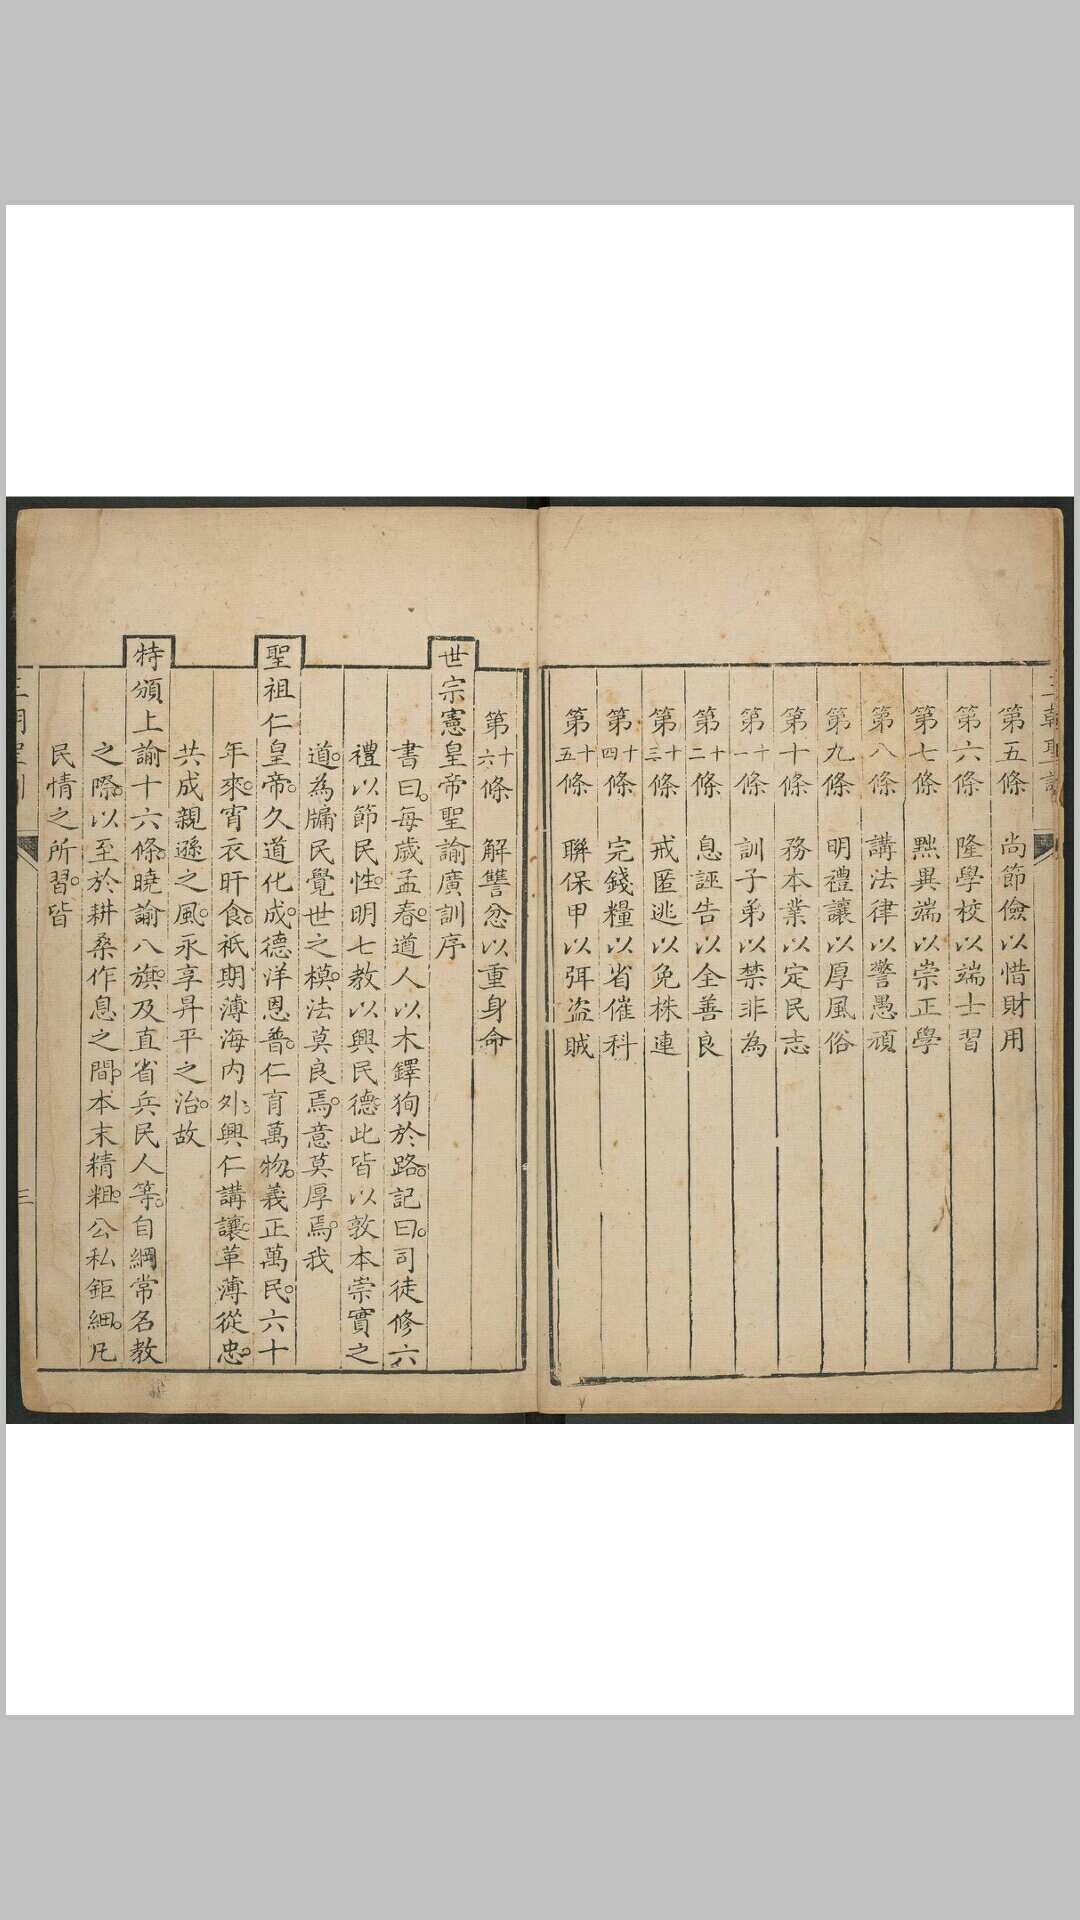 第五條 尚節儉以惜財用
第六條 隆學校以端士習
第七條 黜異端以崇正學
第八條 講法律以警愚頑
第九條 明禮讓以厚風俗
第十條 務本業以定民志
第十一條 訓子弟以禁非為
第十二條 息誣告以全善良
第十三條 戒匿逃以免株連
第十四條 完錢糧以省催科
第十五條 聯保甲以弭盜賊
第十六條 解讐忿以重身命
世宗憲皇帝聖諭廣訓序
書曰。每歲孟春。遒人以木鐸狥於路。記曰。司徒修六
禮以節民性。明七教以興民德此皆以敦本崇實之
道。為牖民覺世之模。法莫良焉。意莫厚焉。我
聖祖仁皇帝。久道化成。德洋恩普。仁育萬物。義正萬民。六十
年來。宵衣旰食。祇期薄海內外。興仁講讓。革薄從忠。
共成親遜之風。永享昇平之治。故
特頒上諭十六條。曉諭八旗。及直省兵民人等。自綱常名教
之際。以至於耕桑作息之間。本末精粗。公私鉅細。凡
民情之所習。皆
三